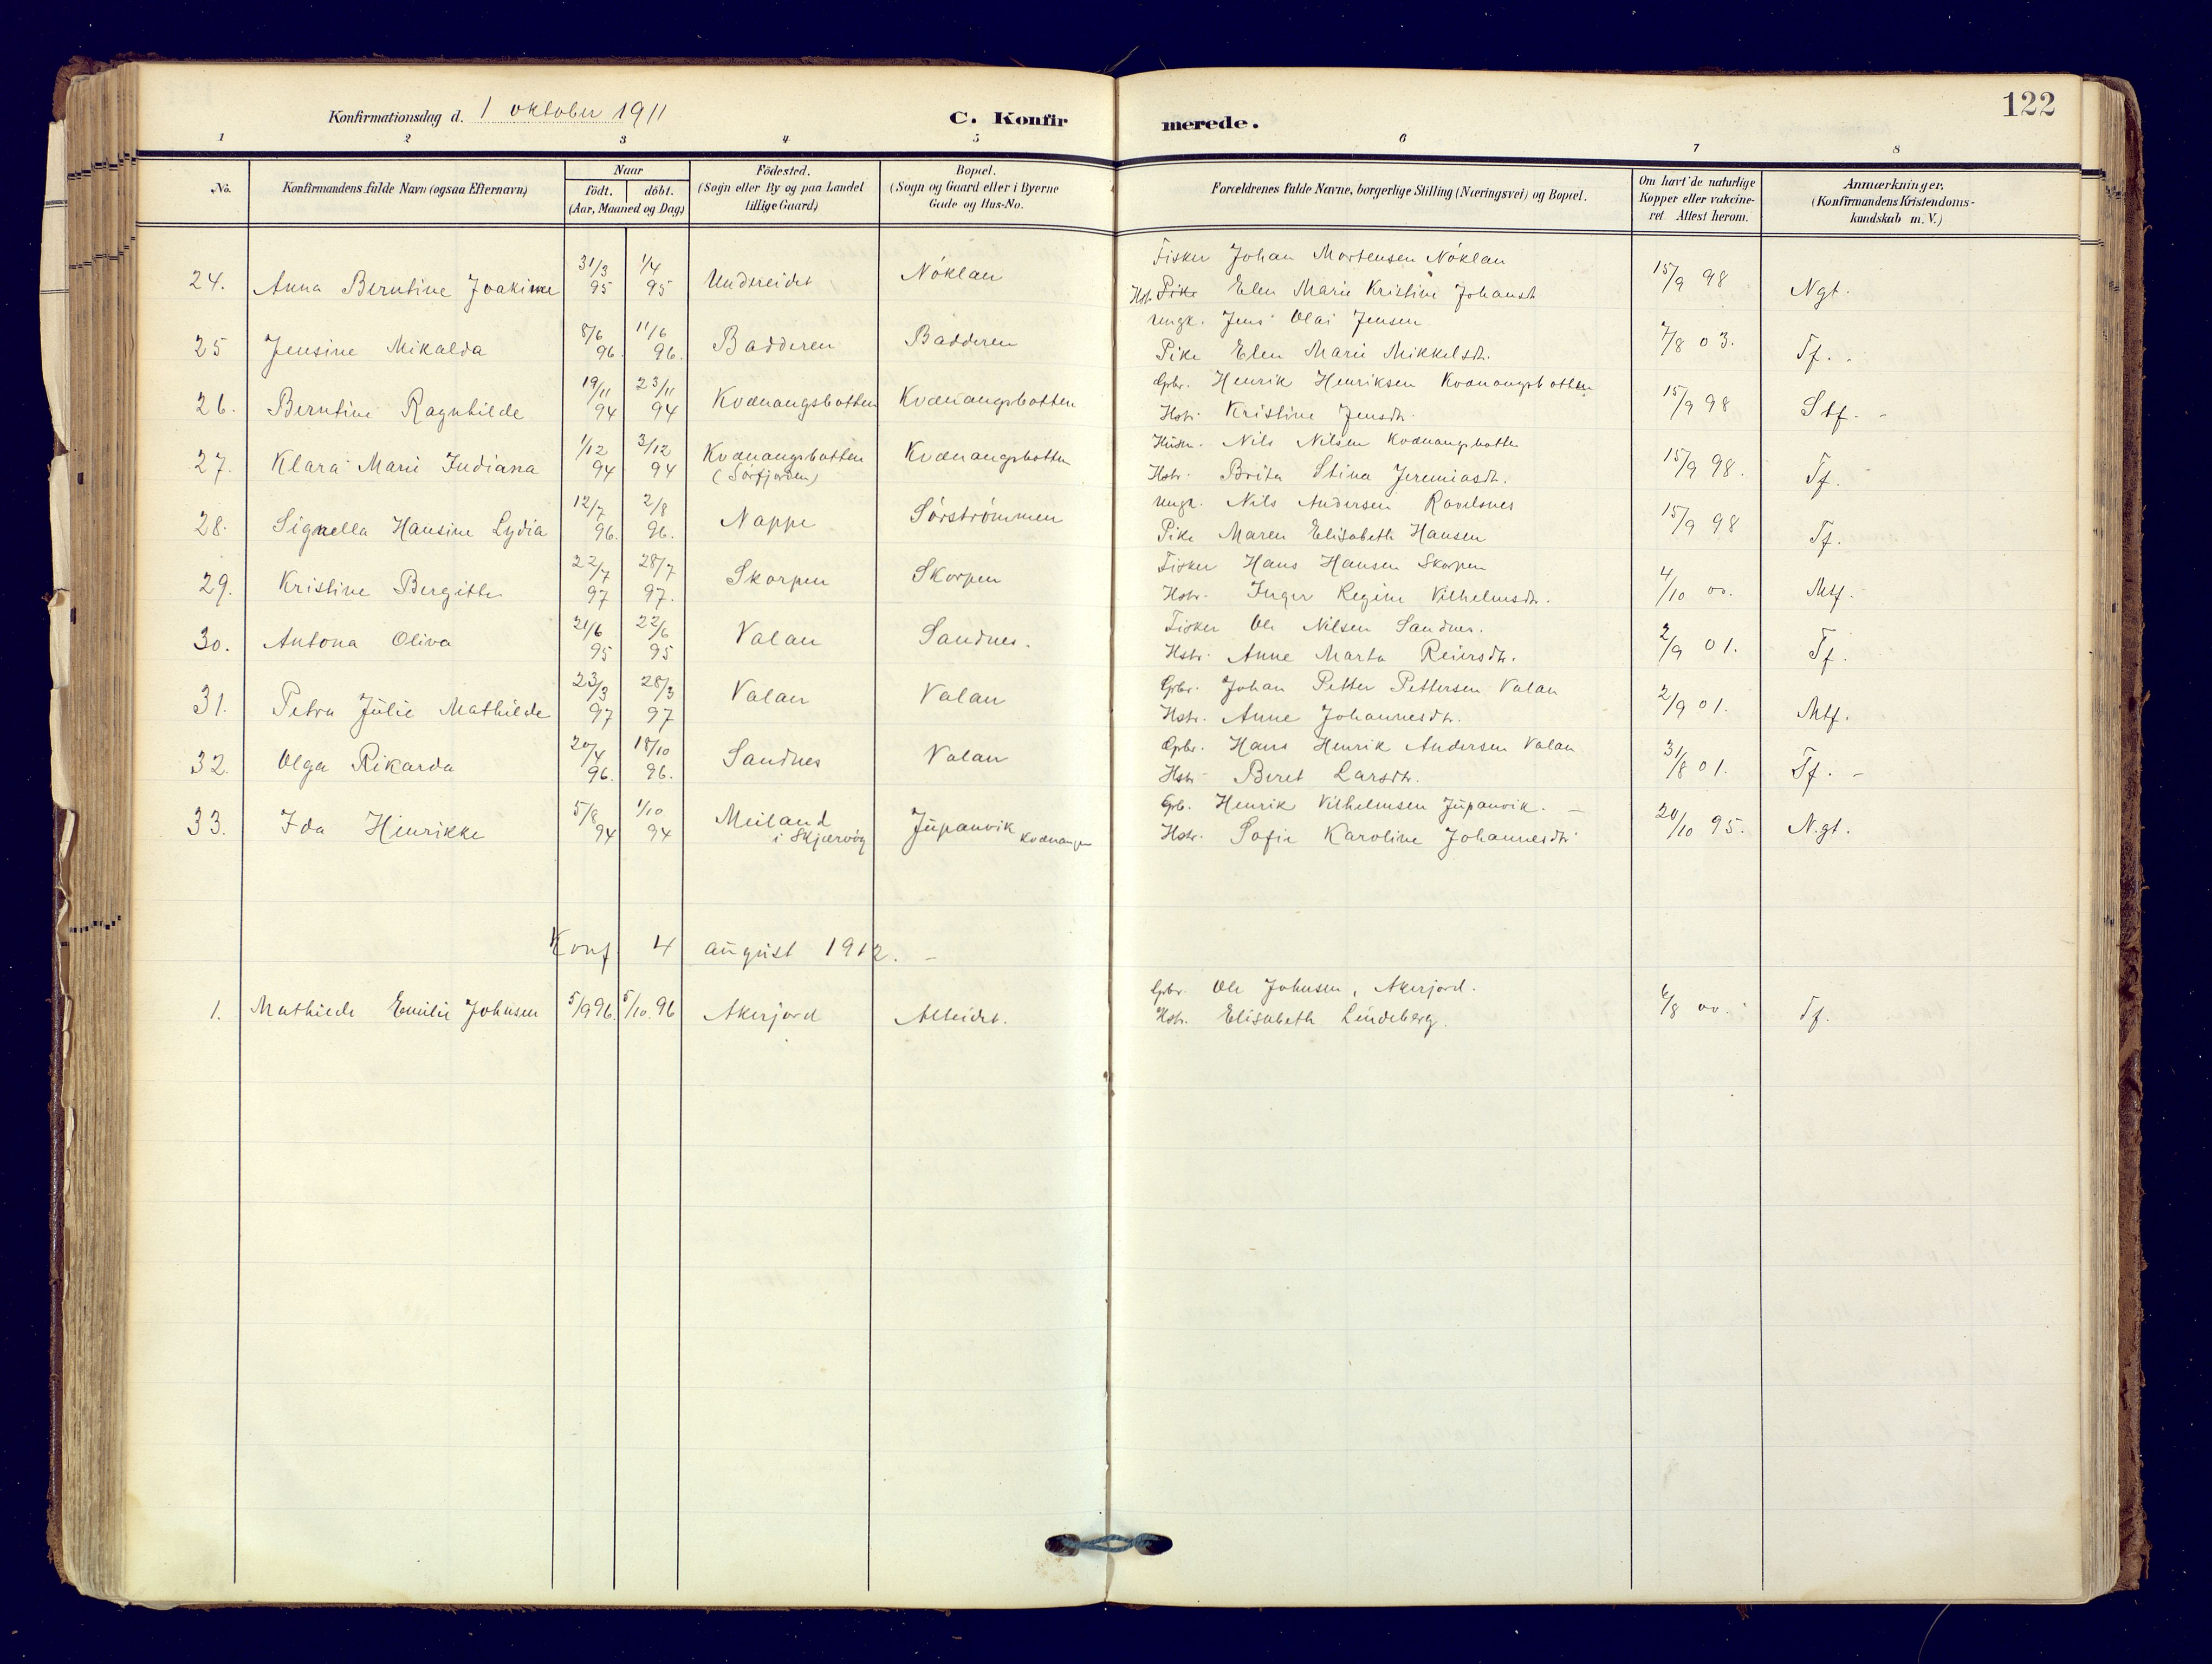 122
Konfirmationsdag d. 1 oktober 1911
C. Konfirmerede.
1 2 3 4 5 6 7 8
No. Konfirmandens fulde Navn (ogsaa Efternavn) Naar födt. döbt. (Aar, Maaned og Dag) Födested. (Sogn eller By og paa Landet tillige Gaard) Bopæl. (Sogn og Gaard eller i Byerne Gade og Hus-No. Forældrenes fulde Navne, borgerlige Stilling (Næringsvei) og Bopæl. Om havt de naturlige Kopper eller vakcineret. Attest herom. Anmærkninger. (Konfirmandens Kristendomskundskab m. V.)
24. Anna Berntine Joakime 31/3 95 1/4 95 Undereidet Nöklan Fisker Johan Mortensen Nöklan 15/9 98 Ngt.
Hst. Pike Elen Marie Kristine Johansd.
25 Jensine Mikalda 8/6 96. 11/6 96. Badderen Badderen Ungk. Jens Olai Jensen 7/8 03. Tf.
Pike Elen Marie Mikkelsdtr.
26. Berntine Ragnhilde 19/11 94 23/11 94 Kvænangsbotten Kvænangsbotten Gbr. Henrik Henriksen Kvænangsbotten 15/9 98 Stf. -
Hstr. Kristine Jensdtr.
27. Klara Marie Indiana 1/12 94 3/12 94 Kvænangsbotten (Sörfjorden) Kvænangsbotten Husm. Nils Nilsen Kvænangsbotten 15/9 98. Tf.
Hstr. Brita Stina Jeremiasdt.
28. Signella Hansine Lydia 12/7 96. 2/8 96. Nappe Sörströmmen Ungk. Nils Andersen Ravelsnes 15/9 98 Tf.
Pike Maren Elisabeth Hansen
29. Kristine Bergitte 22/7 97 28/7 97. Skorpen Skorpen Fisker Hans Hansen Skorpen 4/10 00. Mtf.
Hstr. Inger Regine Vilhelmsdtr.
30. Antona Oliva 21/6 95 22/6 95 Valan Sandnes. Fisker Ole Nilsen Sandnes. 2/9 01. Tf.
Hstr. Anne Marta Reiersdtr.
31. Petra Julie Mathilde 23/3 97 28/3 97 Valan Valan Gbr. Johan Petter Pettersen Valan 2/9 01. Mtf.
Hstr. Anne Johannesdtr.
32. Olga Rikarda 20/4 96. 18/10 96. Sandnes Valan Gbr. Hans Henrik Andersen Valan 31/8 01. Tf. -
Hstr. Beret Larsdtr.
33. Ida Henrikke 5/8 94 1/10 94 Meiland i Skjærvöy Jupanvik Kvænangen Gbr. Henrik Vilhelmsen Jupanvik. - 20/10 95. N.gt.
Hstr. Sofie Karoline Johannesdtr
Konf 4 august 1912. -
1. Mathilde Emilie Johnsen 5/9 96. 5/10. 96 Akerjord Alteidet. Gbr. Ole Johnsen, Akerjord. 6/8 00. Tf.
Hstr. Elisabeth Lindeberg.